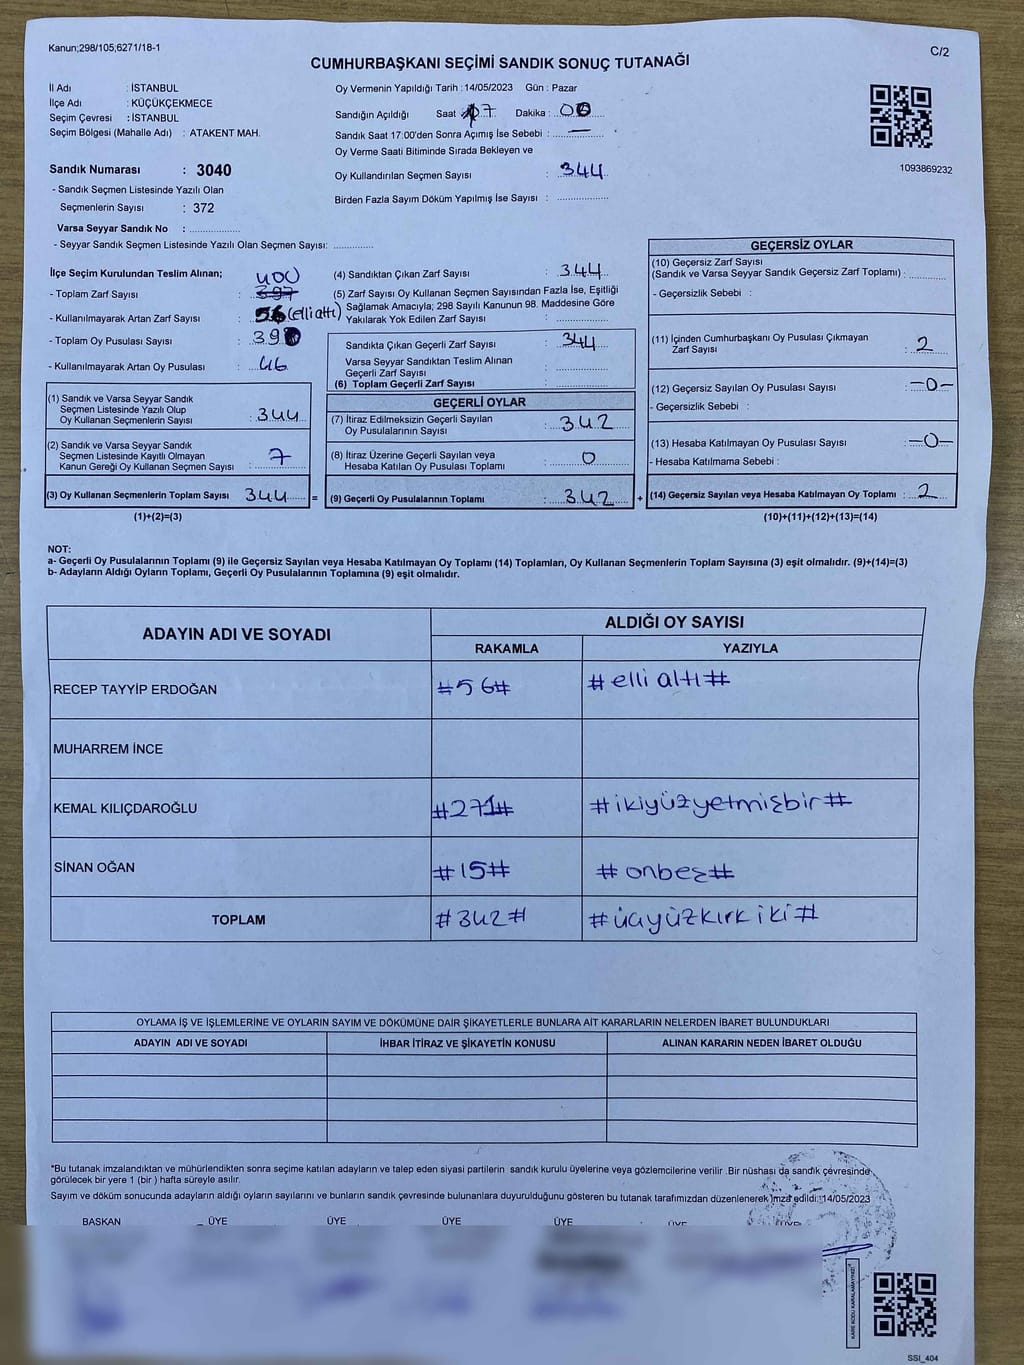 Kanun;298/105;6271/18-1
C/2
CUMHURBAŞKANI SEÇİMİ SANDIK SONUÇ TUTANAĞI
İl Adı : İSTANBUL
İlçe Adı : KÜÇÜKÇEKMECE
Seçim Çevresi : İSTANBUL
Seçim Bölgesi (Mahalle Adı) : ATAKENT MAH.
Oy Vermenin Yapıldığı Tarih :14/05/2023 Gün : Pazar
Sandığın Açıldığı Saat 17 Dakika : 00
Sandık Saat 17:00'den Sonra Açımış İse Sebebi : —
Oy Verme Saati Bitiminde Sırada Bekleyen ve
Oy Kullandırılan Seçmen Sayısı : 344
Birden Fazla Sayım Döküm Yapılmış İse Sayısı :
1093869232
Sandık Numarası : 3040
- Sandık Seçmen Listesinde Yazılı Olan
Seçmenlerin Sayısı : 372
Varsa Seyyar Sandık No :
- Seyyar Sandık Seçmen Listesinde Yazılı Olan Seçmen Sayısı:
İlçe Seçim Kurulundan Teslim Alınan;
- Toplam Zarf Sayısı : 400 397
- Kullanılmayarak Artan Zarf Sayısı : 56 (elli altı)
- Toplam Oy Pusulası Sayısı : 390
- Kullanılmayarak Artan Oy Pusulası : 46
(1) Sandık ve Varsa Seyyar Sandık
Seçmen Listesinde Yazılı Olup
Oy Kullanan Seçmenlerin Sayısı : 344
(2) Sandık ve Varsa Seyyar Sandık
Seçmen Listesinde Kayıtlı Olmayan
Kanun Gereği Oy Kullanan Seçmen Sayısı : 7
(3) Oy Kullanan Seçmenlerin Toplam Sayısı : 344 =
(1)+(2)=(3)
(4) Sandıktan Çıkan Zarf Sayısı : 344
(5) Zarf Sayısı Oy Kullanan Seçmen Sayısından Fazla İse, Eşitliği
Sağlamak Amacıyla; 298 Sayılı Kanunun 98. Maddesine Göre
Yakılarak Yok Edilen Zarf Sayısı :
Sandıkta Çıkan Geçerli Zarf Sayısı : 344
Varsa Seyyar Sandıktan Teslim Alınan
Geçerli Zarf Sayısı :
(6) Toplam Geçerli Zarf Sayısı :
GEÇERLİ OYLAR
(7) İtiraz Edilmeksizin Geçerli Sayılan
Oy Pusulalarının Sayısı : 342
(8) İtiraz Üzerine Geçerli Sayılan veya
Hesaba Katılan Oy Pusulası Toplamı : 0
(9) Geçerli Oy Pusulalarının Toplamı : 342 +
GEÇERSİZ OYLAR
(10) Geçersiz Zarf Sayısı
(Sandık ve Varsa Seyyar Sandık Geçersiz Zarf Toplamı) :
- Geçersizlik Sebebi :
(11) İçinden Cumhurbaşkanı Oy Pusulası Çıkmayan
Zarf Sayısı : 2
(12) Geçersiz Sayılan Oy Pusulası Sayısı : —0—
- Geçersizlik Sebebi :
(13) Hesaba Katılmayan Oy Pusulası Sayısı : —0—
- Hesaba Katılmama Sebebi :
(14) Geçersiz Sayılan veya Hesaba Katılmayan Oy Toplamı : 2
(10)+(11)+(12)+(13)=(14)
NOT:
a- Geçerli Oy Pusulalarının Toplamı (9) ile Geçersiz Sayılan veya Hesaba Katılmayan Oy Toplamı (14) Toplamları, Oy Kullanan Seçmenlerin Toplam Sayısına (3) eşit olmalıdır. (9)+(14)=(3)
b- Adayların Aldığı Oyların Toplamı, Geçerli Oy Pusulalarının Toplamına (9) eşit olmalıdır.
ADAYIN ADI VE SOYADI
ALDIĞI OY SAYISI
RAKAMLA YAZIYLA
RECEP TAYYİP ERDOĞAN #56# #elli altı#
MUHARREM İNCE
KEMAL KILIÇDAROĞLU #271# #ikiyüzyetmişbir#
SİNAN OĞAN #15# #onbeş#
TOPLAM #342# #üçyüzkırkiki#
OYLAMA İŞ VE İŞLEMLERİNE VE OYLARIN SAYIM VE DÖKÜMÜNE DAİR ŞİKAYETLERLE BUNLARA AİT KARARLARIN NELERDEN İBARET BULUNDUKLARI
ADAYIN ADI VE SOYADI İHBAR İTİRAZ VE ŞİKAYETİN KONUSU ALINAN KARARIN NEDEN İBARET OLDUĞU
*Bu tutanak imzalandıktan ve mühürlendikten sonra seçime katılan adayların ve talep eden siyasi partilerin sandık kurulu üyelerine veya gözlemcilerine verilir .Bir nüshası da sandık çevresinde
görülecek bir yere 1 (bir ) hafta süreyle asılır.
Sayım ve döküm sonucunda adayların aldığı oyların sayılarını ve bunların sandık çevresinde bulunanlara duyurulduğunu gösteren bu tutanak tarafımızdan düzenlenerek imza edildi.14/05/2023
BAŞKAN ÜYE ÜYE ÜYE ÜYE ÜYE ÜYE
KARE KODU KARALAMAYINIZ!
SSI_404